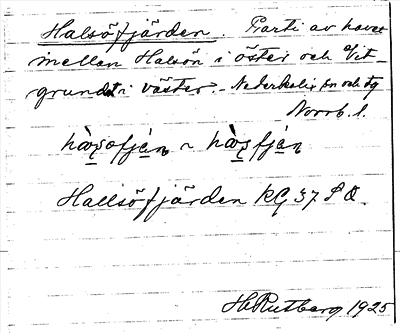 Halsöfjärden. Parti av havet
mellan Halsön i öster och Vit-
grundet i väster. - Nederkalix sn och tg
Norrb. l.
Hallsöfjärden RG 37 SO.
H. Rutberg 1925